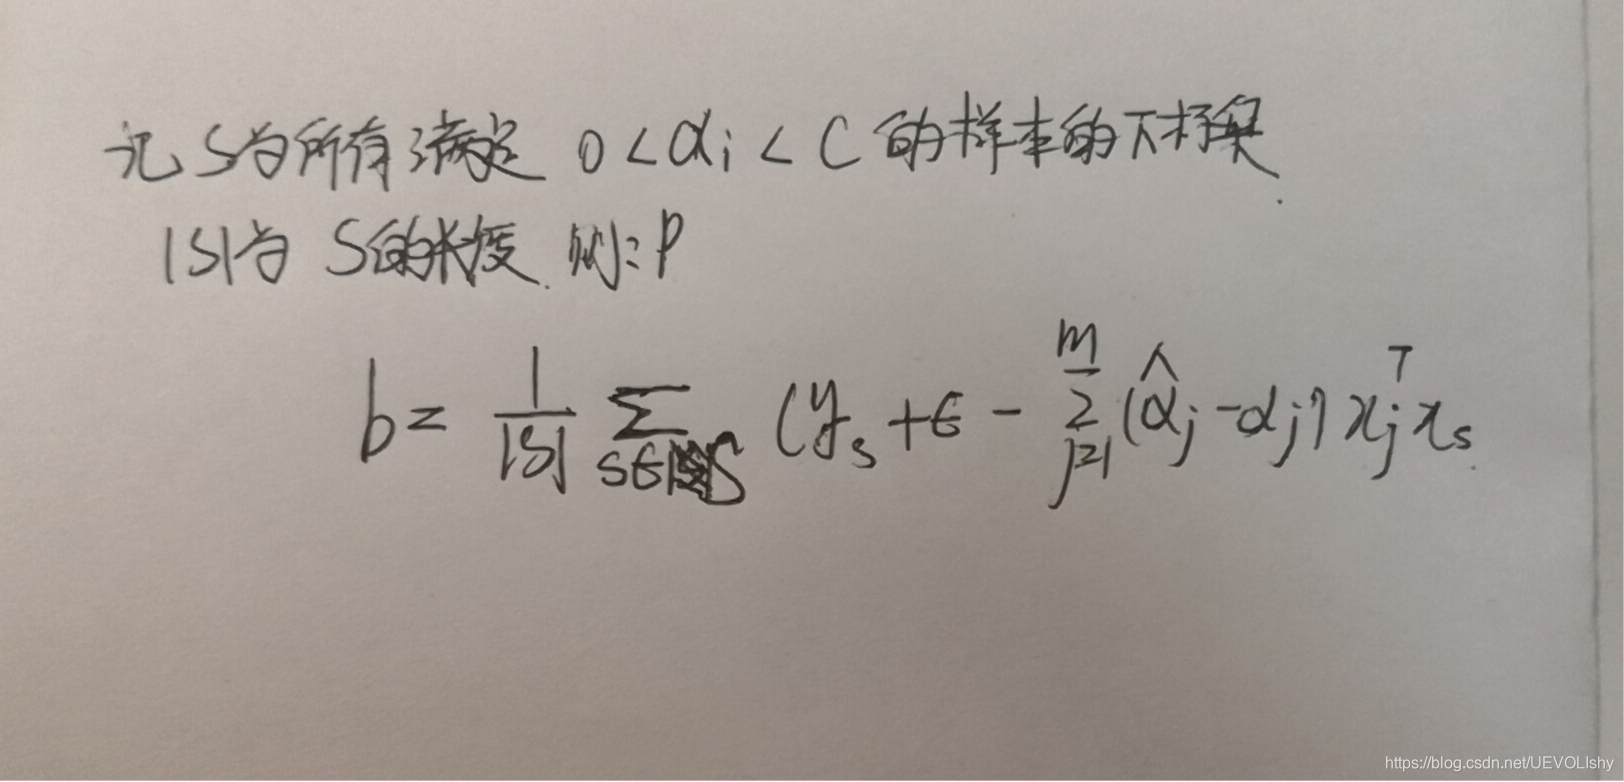 记 S为所有满足 0 < αi < C 的样本的下标集.
|S|为 S的长度. 则: P
b = 1/|S| ∑ s∈S (ys + ϵ - ∑ j=1 m (α̂j - αj) xjᵀ xs.
https://blog.csdn.net/UEVOLIshy